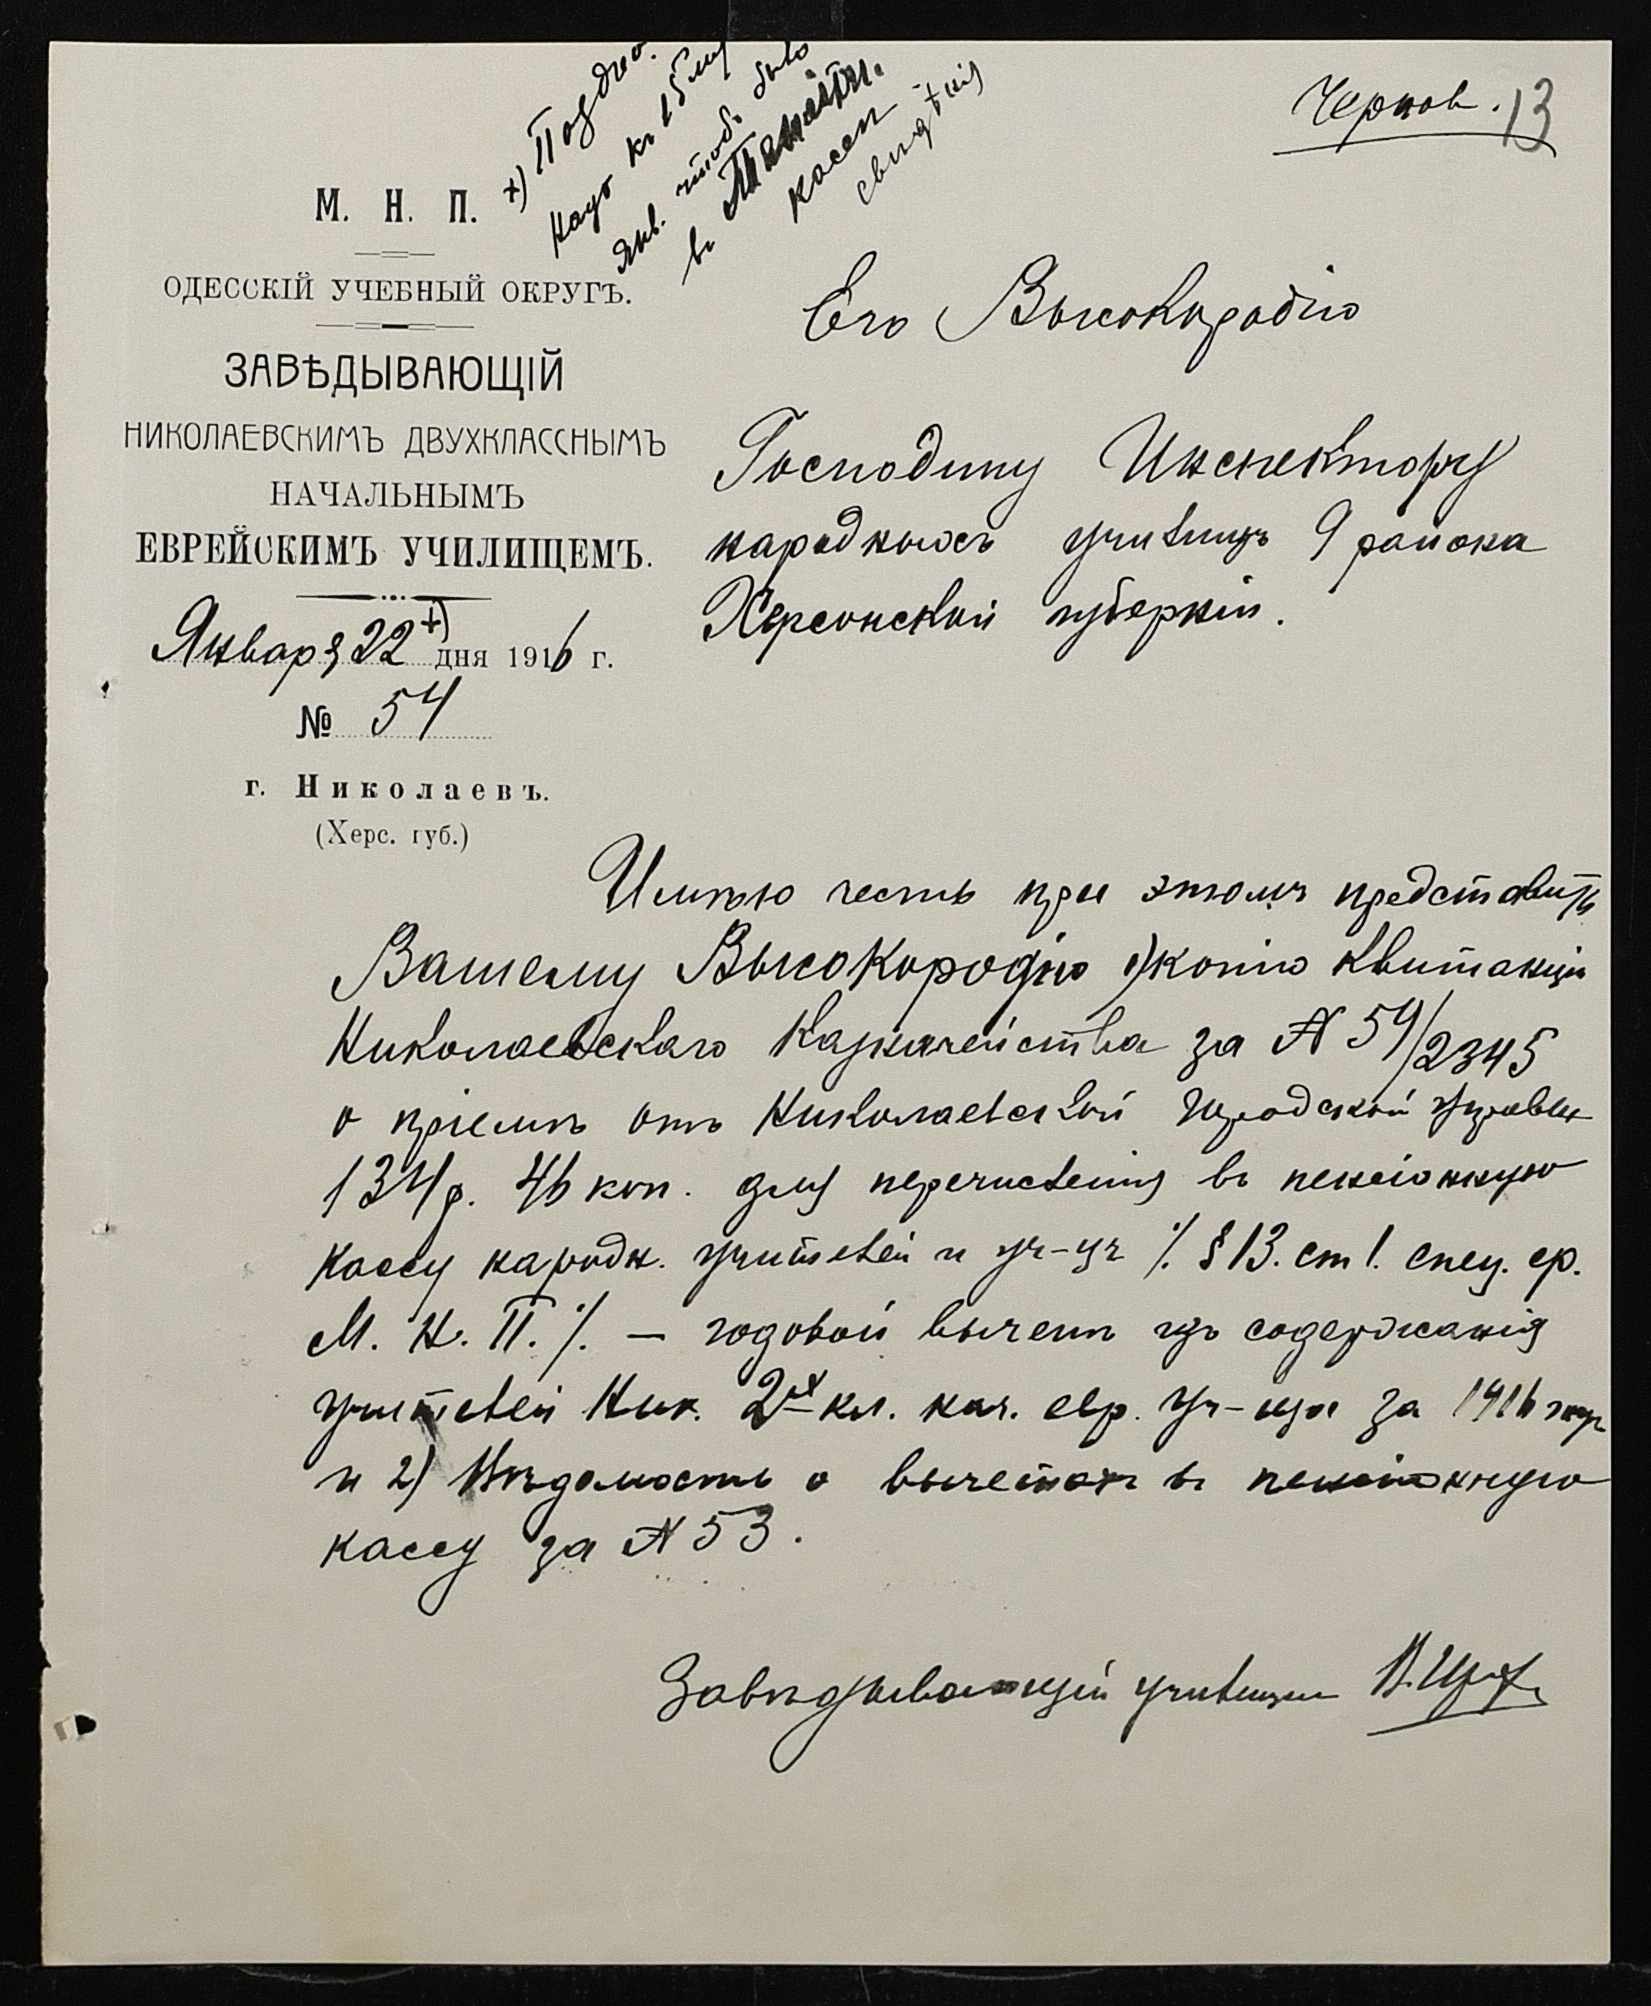 Чернов. 13
х) Поздно.
Надо къ 15 му
Янв. чтобъ было
въ
кассы
свидѣнія
М. Н. П.
ОДЕССКІЙ УЧЕБНЫЙ ОКРУГЪ.
ЗАВѢДЫВАЮЩІЙ
НИКОЛАЕВСКИМЪ ДВУХКЛАССНЫМЪ
НАЧАЛЬНЫМЪ
ЕВРЕЙСКИМЪ УЧИЛИЩЕМЪ.
Января 22 х) дня 1916 г.
№ 54
г. Николаевъ.
(Херс. губ.)
Его Высокородію
Господину Инспектору
народныхъ училищъ 9 района
Херсонской губерніи.
Имѣю честь при этомъ представить
Вашему Высокородію 1) копію квитанціи
Николаевскаго Казначейства за № 54/2345
о пріемѣ отъ Николаевской Городской Управы
134 р. 46 коп. для перечисленія въ пенсіонную
кассу народн. учителей и уч-цъ /. § 13. ст 1. спец. ср.
М. Н. П. /. — годовой вычетъ изъ содержанія
учителей Ник. 2хъ кл. нач. евр. уч-ща за 1916 годъ
и 2) Вѣдомость о вычетахъ въ пенсіонную
кассу за № 53.
Завѣдывающій училищемъ